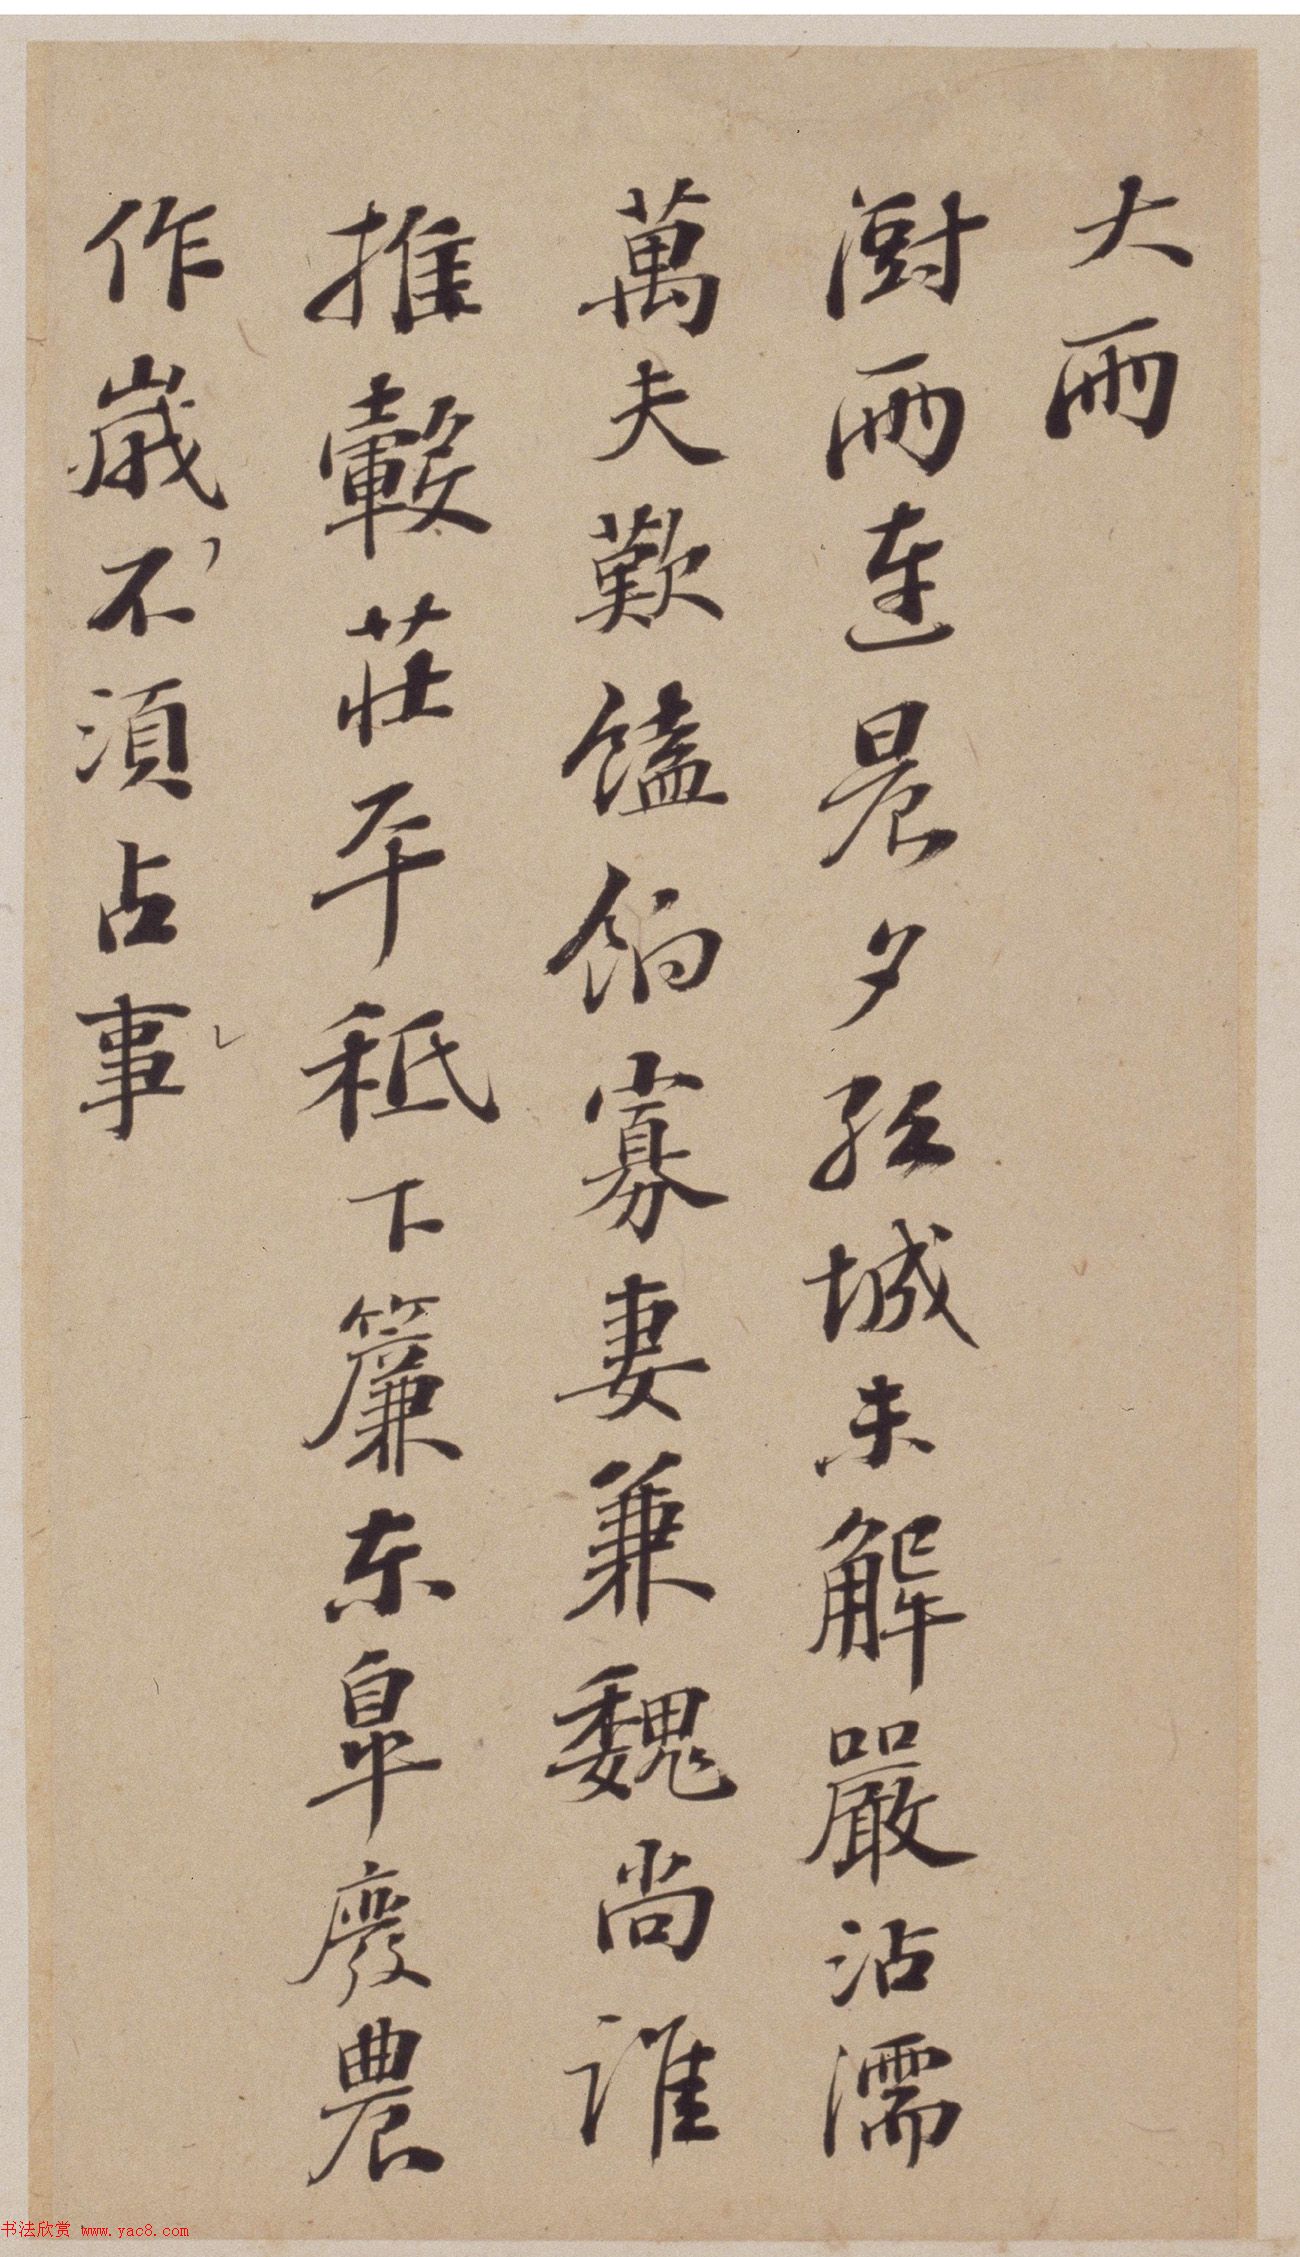 大雨
澍雨連晨夕孤城未解嚴沾濡
萬夫歎饁餉寡妻兼魏尚誰
推轂莊平秖下簾東皐廢農
作歲不須占事
书法欣赏 www.yac8.com